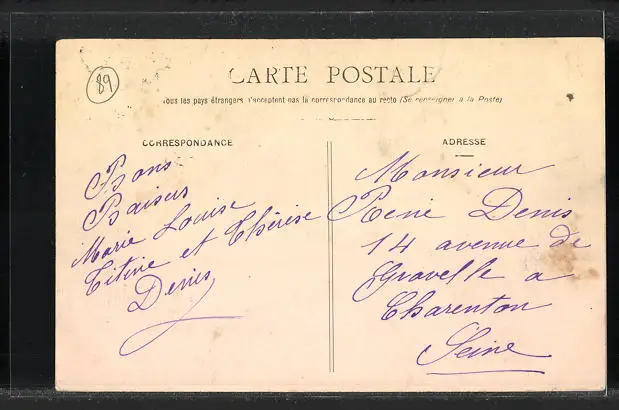 89
CARTE POSTALE
Tous les pays étrangers n'acceptent pas la correspondance au recto (Se renseigner à la Poste)
CORRESPONDANCE
Bons
Baisers
Marie Louise
Titine et Thérèse
Denis
ADRESSE
Monsieur
René Denis
14 avenue de
Gravelle a
Charenton
Seine